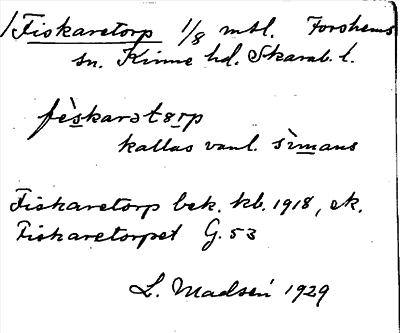 /Fiskaretorp 1/8 mtl. Forshems
sn. Kinne hd. Skarab. l.
fèskarətɷrp
kallas vanl. sìmans
Fiskaretorp bek. kb. 1918, ek.
Fiskaretorpet G. 53
L. Madsén 1929